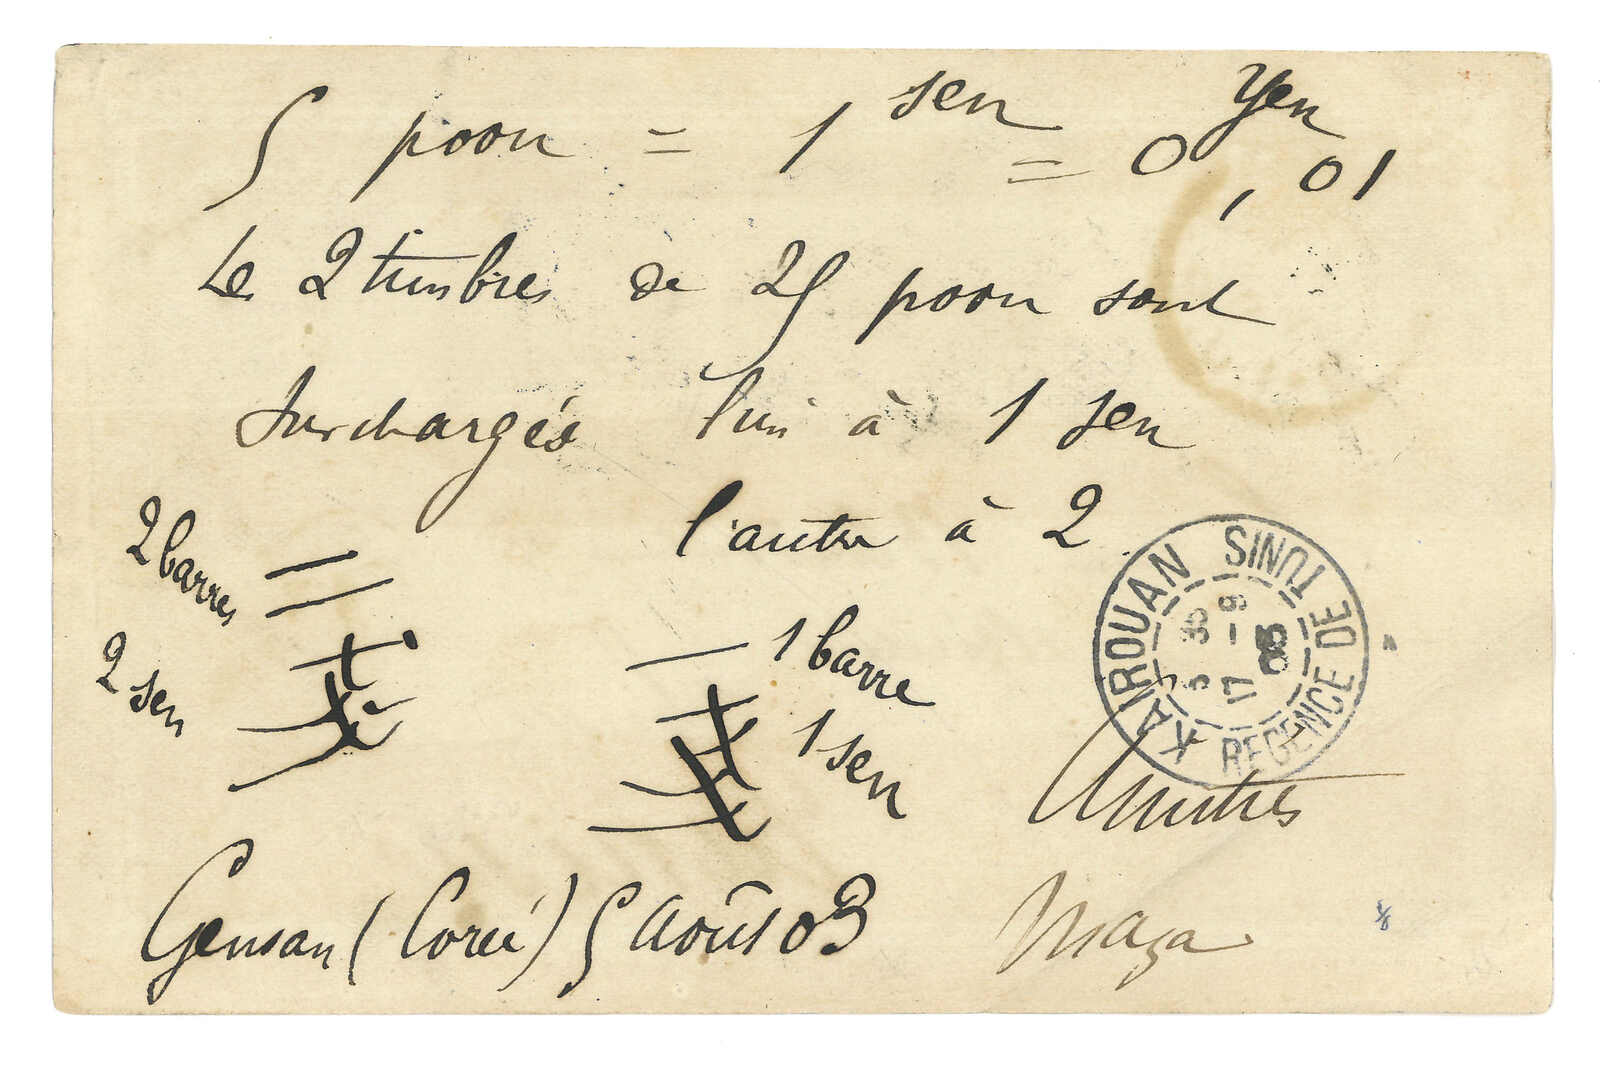 5 poon = 1 sen = 0 Yen, 01
Les 2 timbres de 25 poon sont
surchargés l'un à 1 sen
l'autre à 2.
2 barres
2 sen
1 barre
1 sen
KAIROUAN REGENCE DE TUNIS
17-9
03
Amitiés
Gensan (Corée) 5 Août 03